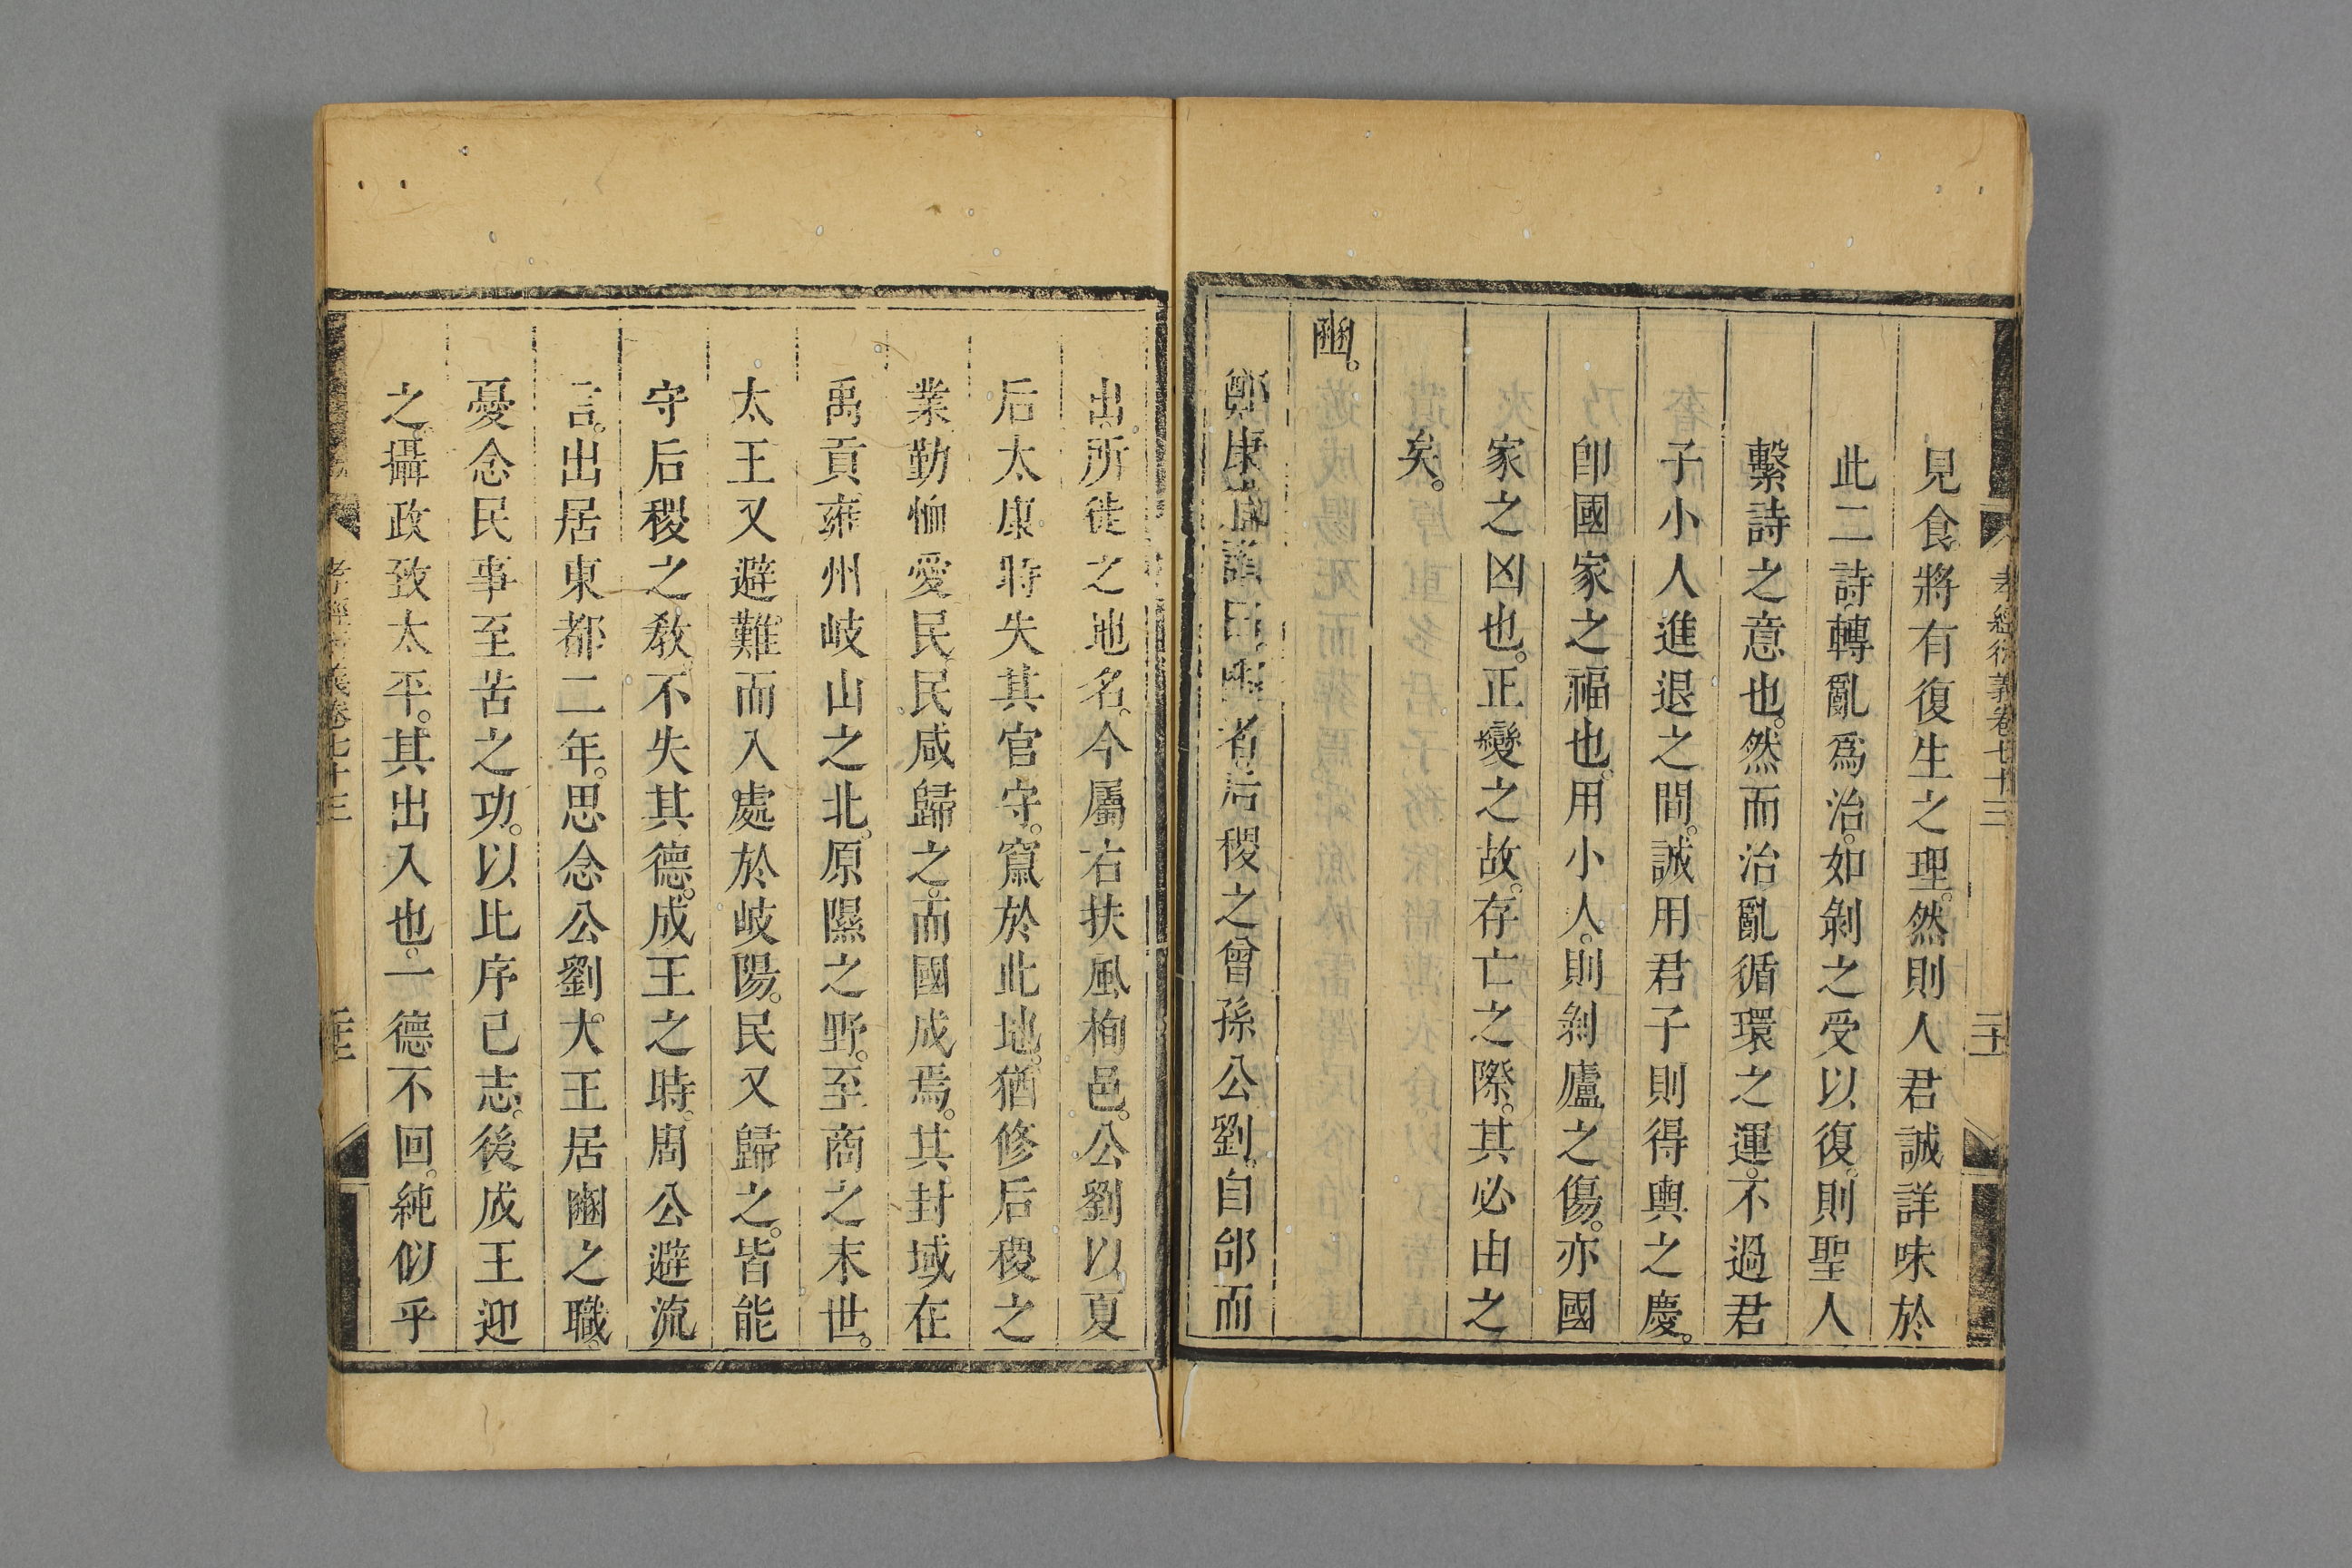 孝經衍義卷七十三
見食。將有復生之理。然則人君誠詳味於
此二詩。轉亂爲治。如剝之受以復。則聖人
繫詩之意也。然而治亂循環之運。不過君
子小人進退之間。誠用君子則得輿之慶。
卽國家之福也。用小人。則剝廬之傷。亦國
家之凶也。正變之故。存亡之際。其必由之
矣。
豳。
鄭康成譜曰。豳者。后稷之曾孫公劉。自邰而
出。所徙之地名。今屬右扶風栒邑。公劉以夏
后太康時失其官守。竄於此地。猶修后稷之
業。勤恤愛民。民咸歸之。而國成焉。其封域在
禹貢雍州岐山之北。原隰之野。至商之末世。
太王又避難。而入處於岐陽。民又歸之。皆能
守后稷之敎。不失其德。成王之時。周公避流
言。出居東都二年。思念公劉。大王居豳之職。
憂念民事至苦之功。以比序己志。後成王迎
之。攝政致太平。其出入也。一德不回。純似乎
孝經衍義卷七十三